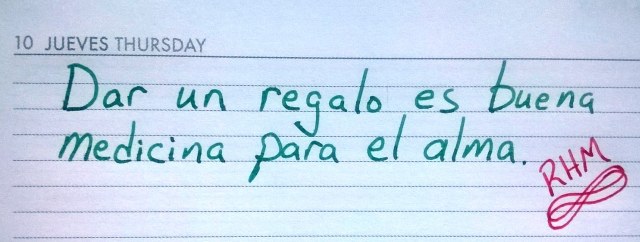 10 JUEVES THURSDAY
Dar un regalo es buena
medicina para el alma.
RHM